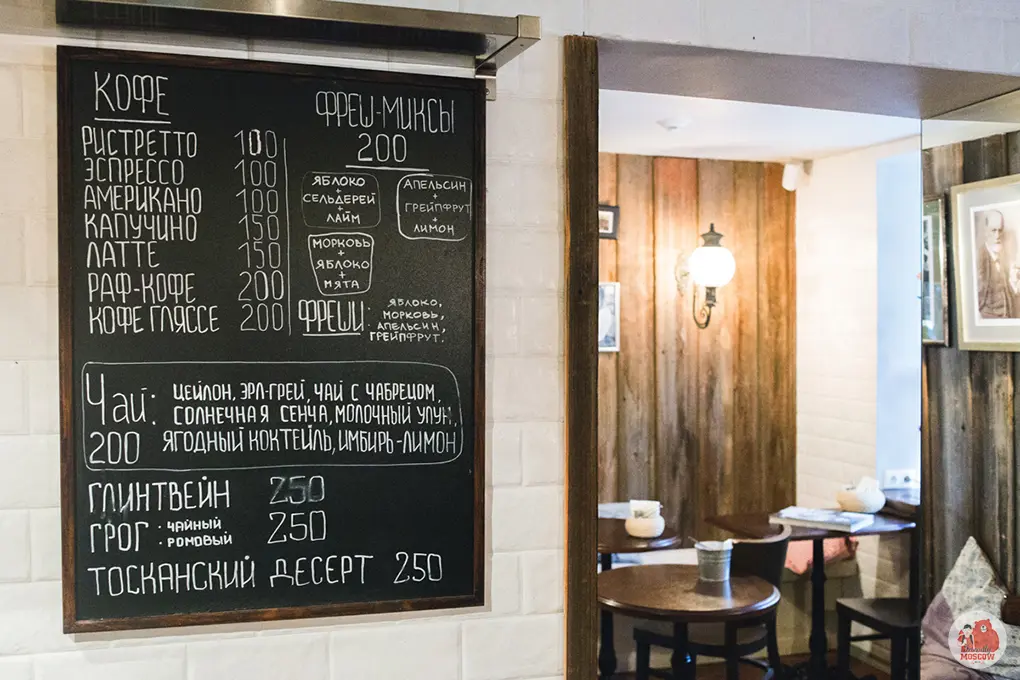 КОФЕ
РИСТРЕТТО 100
ЭСПРЕССО 100
АМЕРИКАНО 100
КАПУЧИНО 150
ЛАТТЕ 150
РАФ-КОФЕ 200
КОФЕ ГЛЯССЕ 200
ФРЕШ-МИКСЫ
200
ЯБЛОКО
+
СЕЛЬДЕРЕЙ
+
ЛАЙМ
АПЕЛЬСИН
+
ГРЕЙПФРУТ
+
ЛИМОН
МОРКОВЬ
+
ЯБЛОКО
+
МЯТА
ФРЕШИ: ЯБЛОКО,
МОРКОВЬ,
АПЕЛЬСИН,
ГРЕЙПФРУТ.
Чай: ЦЕЙЛОН, ЭРЛ-ГРЕЙ, ЧАЙ С ЧАБРЕЦОМ,
СОЛНЕЧНАЯ СЕНЧА, МОЛОЧНЫЙ УЛУН,
200 ЯГОДНЫЙ КОКТЕЙЛЬ, ИМБИРЬ-ЛИМОН
ГЛИНТВЕЙН 250
ГРОГ · ЧАЙНЫЙ 250
· РОМОВЫЙ
ТОСКАНСКИЙ ДЕСЕРТ 250
MOSCOW